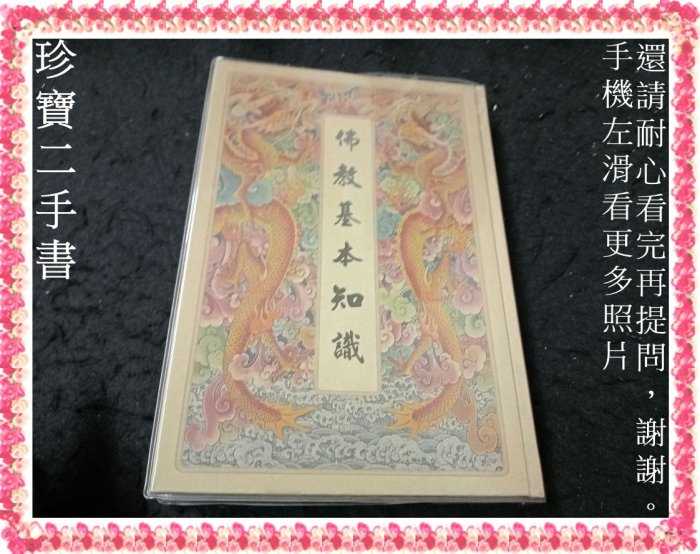 還請耐心看完再提問，謝謝。
手機左滑看更多照片
佛教基本知識
珍寶二手書